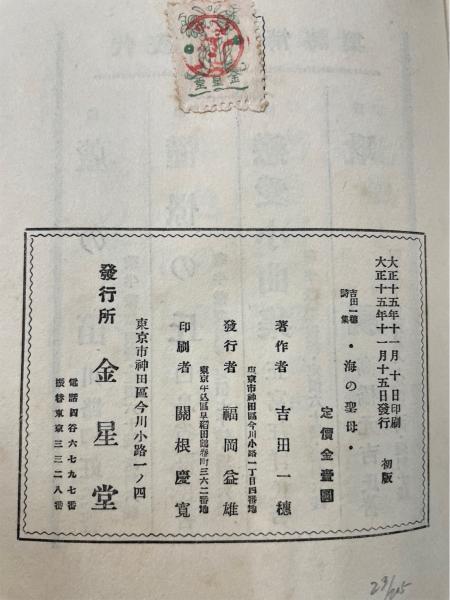 金星堂
大正十五年十一月 十日印刷
大正十五年十一月十五日發行
初版
吉田一穗
詩集
・海の聖母・
定價金壹圓
著作者 吉田一穗
東京市神田區今川小路一丁目四番地
發行者 福岡益雄
東京牛込區早稻田鶴卷町三六二番地
印刷者 關根慶寬
東京市神田區今川小路一ノ四
發行所 金星堂
電話四谷六七九七番
振替東京三三二八番